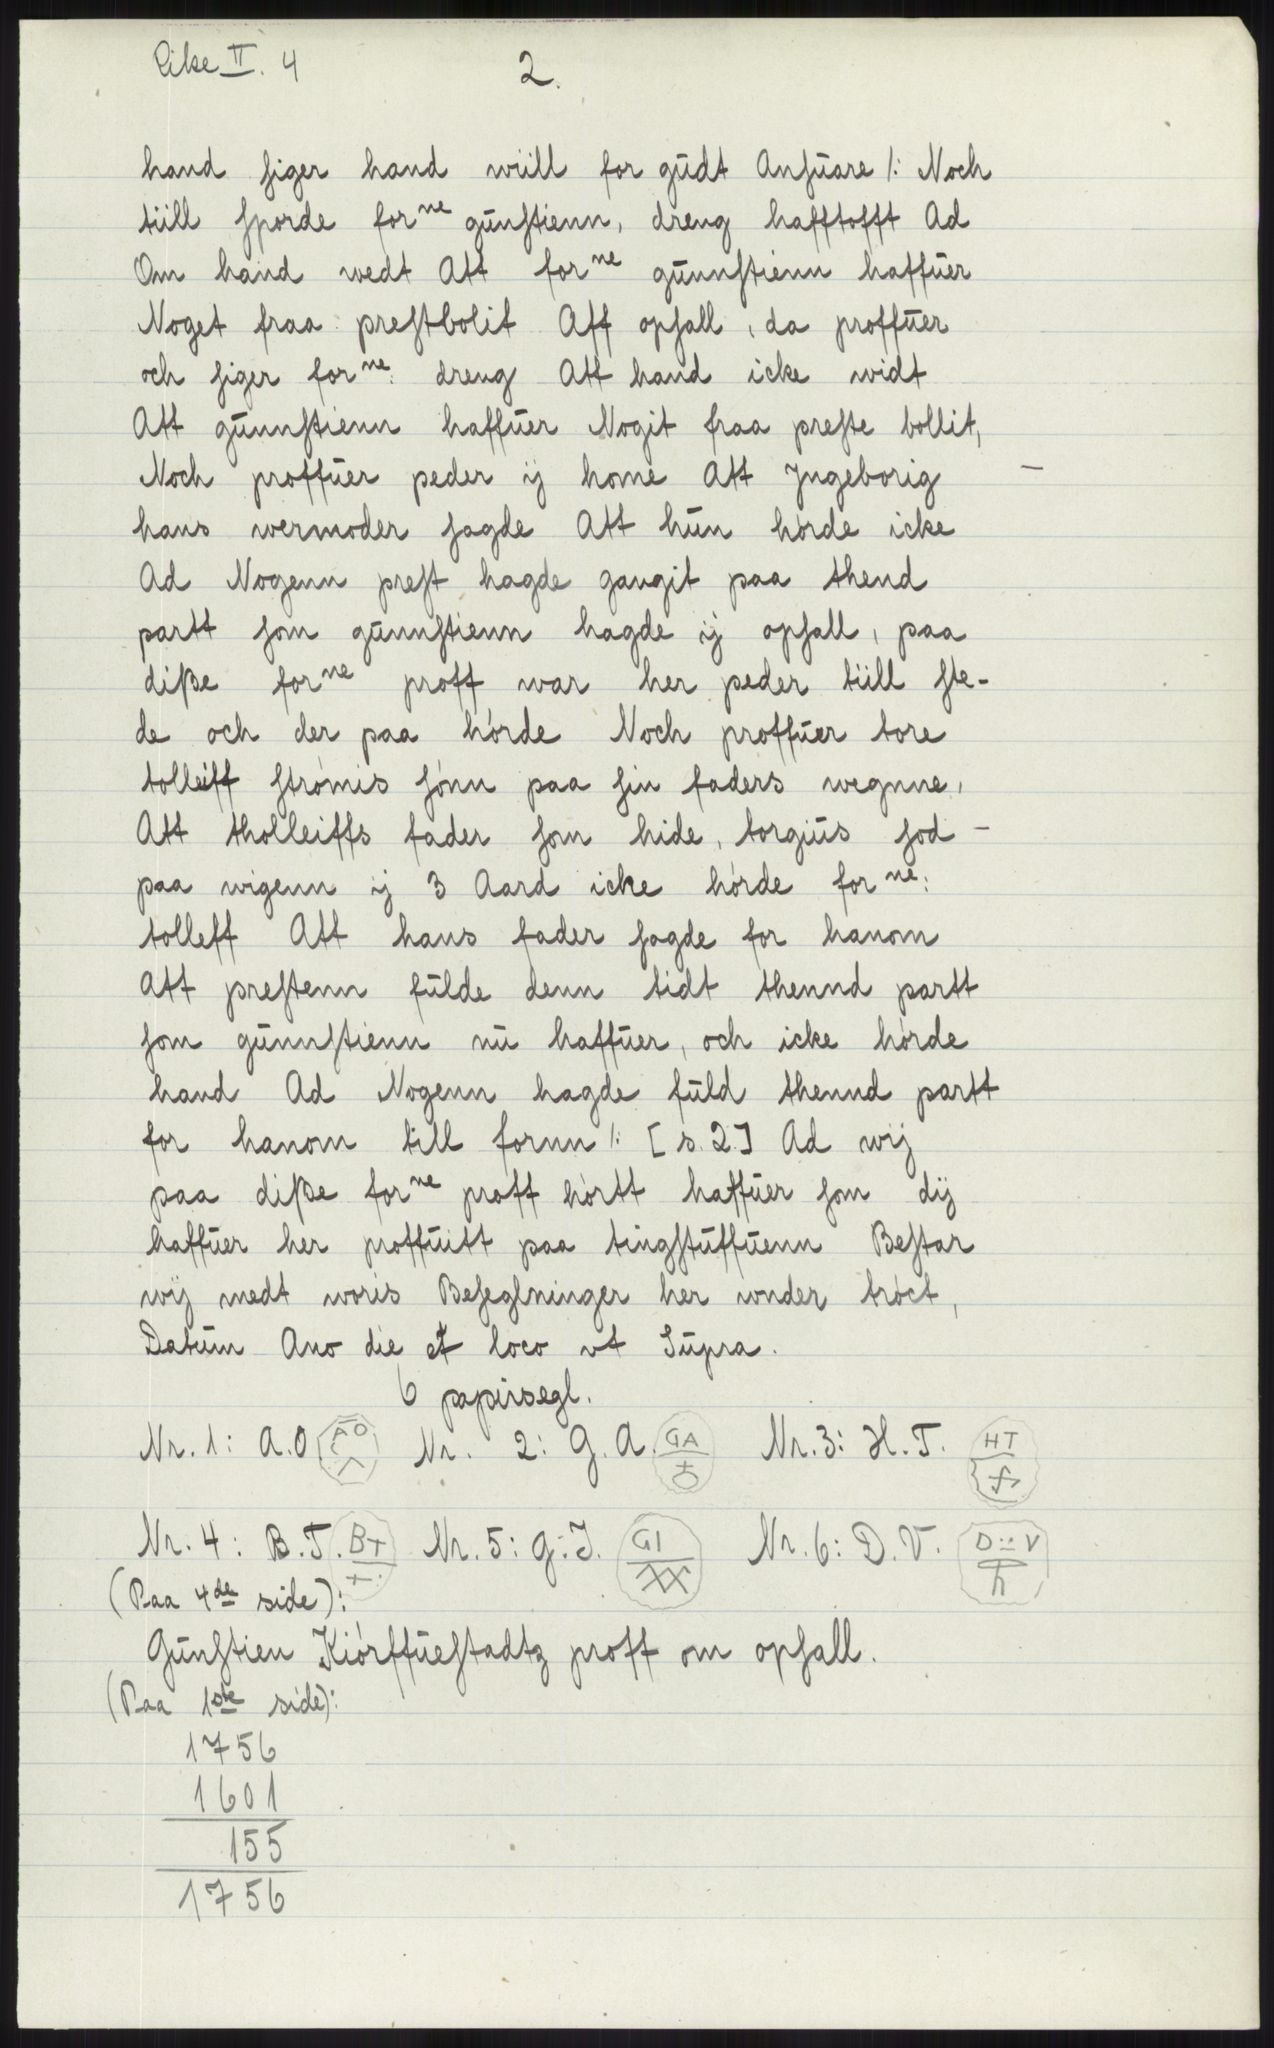 Eike II. 4
2.
hand siger hand wiill for gŭdt Ansŭare /: Noch
tiill sporde forne gŭnstienn, dreng hafftofft Ad
Om hand wedt Att forne gŭnnstienn haffŭer
Noget fraa prestbolit Aff opsall, da proffŭer
och siger forne: dreng Att hand icke widt
Att gŭnnstienn haffŭer Nogit fraa preste bollit,
Noch proffŭer peder ij home Att Jngeborig –
hans wermoder sagde Att hŭn hórde icke
Ad Nogenn prest hagde gangit paa thend
partt som gŭnnstienn hagde ij opsall, paa
diße forne proff war her peder tiill ste-
de och der paa hórde Noch proffŭer tore
tolleiff strómis sónn paa sin faders wegnne,
Att tholleiffs fader som hide, torgiŭs sod –
paa wigenn ij 3 Aard icke hórde forne:
tolleff Att hans fader sagde for hanom
Att prestenn fŭlde denn tidt thennd partt
som gŭnnstienn nŭ haffŭer, och icke hórde
hand Ad Nogenn hagde fŭld thennd partt
for hanom till fornn /: [s. 2.] Ad wij
paa diße forne proff hórtt haffŭer som dij
haffŭer her proffŭitt paa tingstŭffŭenn Bestar
wij medt woris Beseglninger her wnder tróct,
Datŭm Ano die et loco vt Sŭpra.
6 papirsegl.
Nr. 1: A.O AO Nr. 2: G. A. GA Nr. 3: H. T. HT
Nr. 4: B.T. BT Nr. 5: G.I. GI Nr. 6: D. V. D:-V
(Paa 4de side):
Gŭnstien Kiórffŭestadtz proff om opsall.
(Paa 1ste side):
1756
1601
155
1756